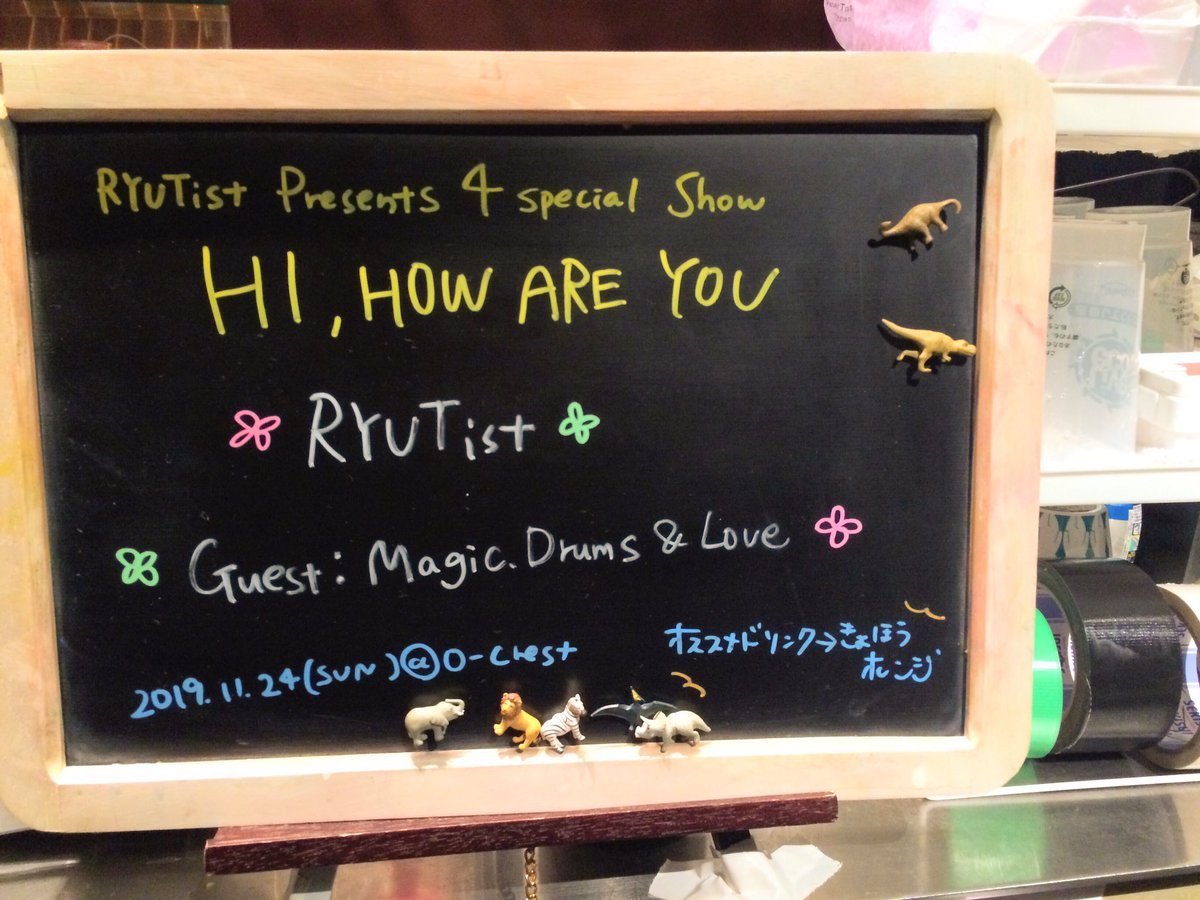 RYUTist Presents 4 special Show
HI, HOW ARE YOU
RYUTist
Guest: Magic, Drums & Love
2019.11.24(SUN)@O-Crest
オススメドリンク→きょほう
オレンジ